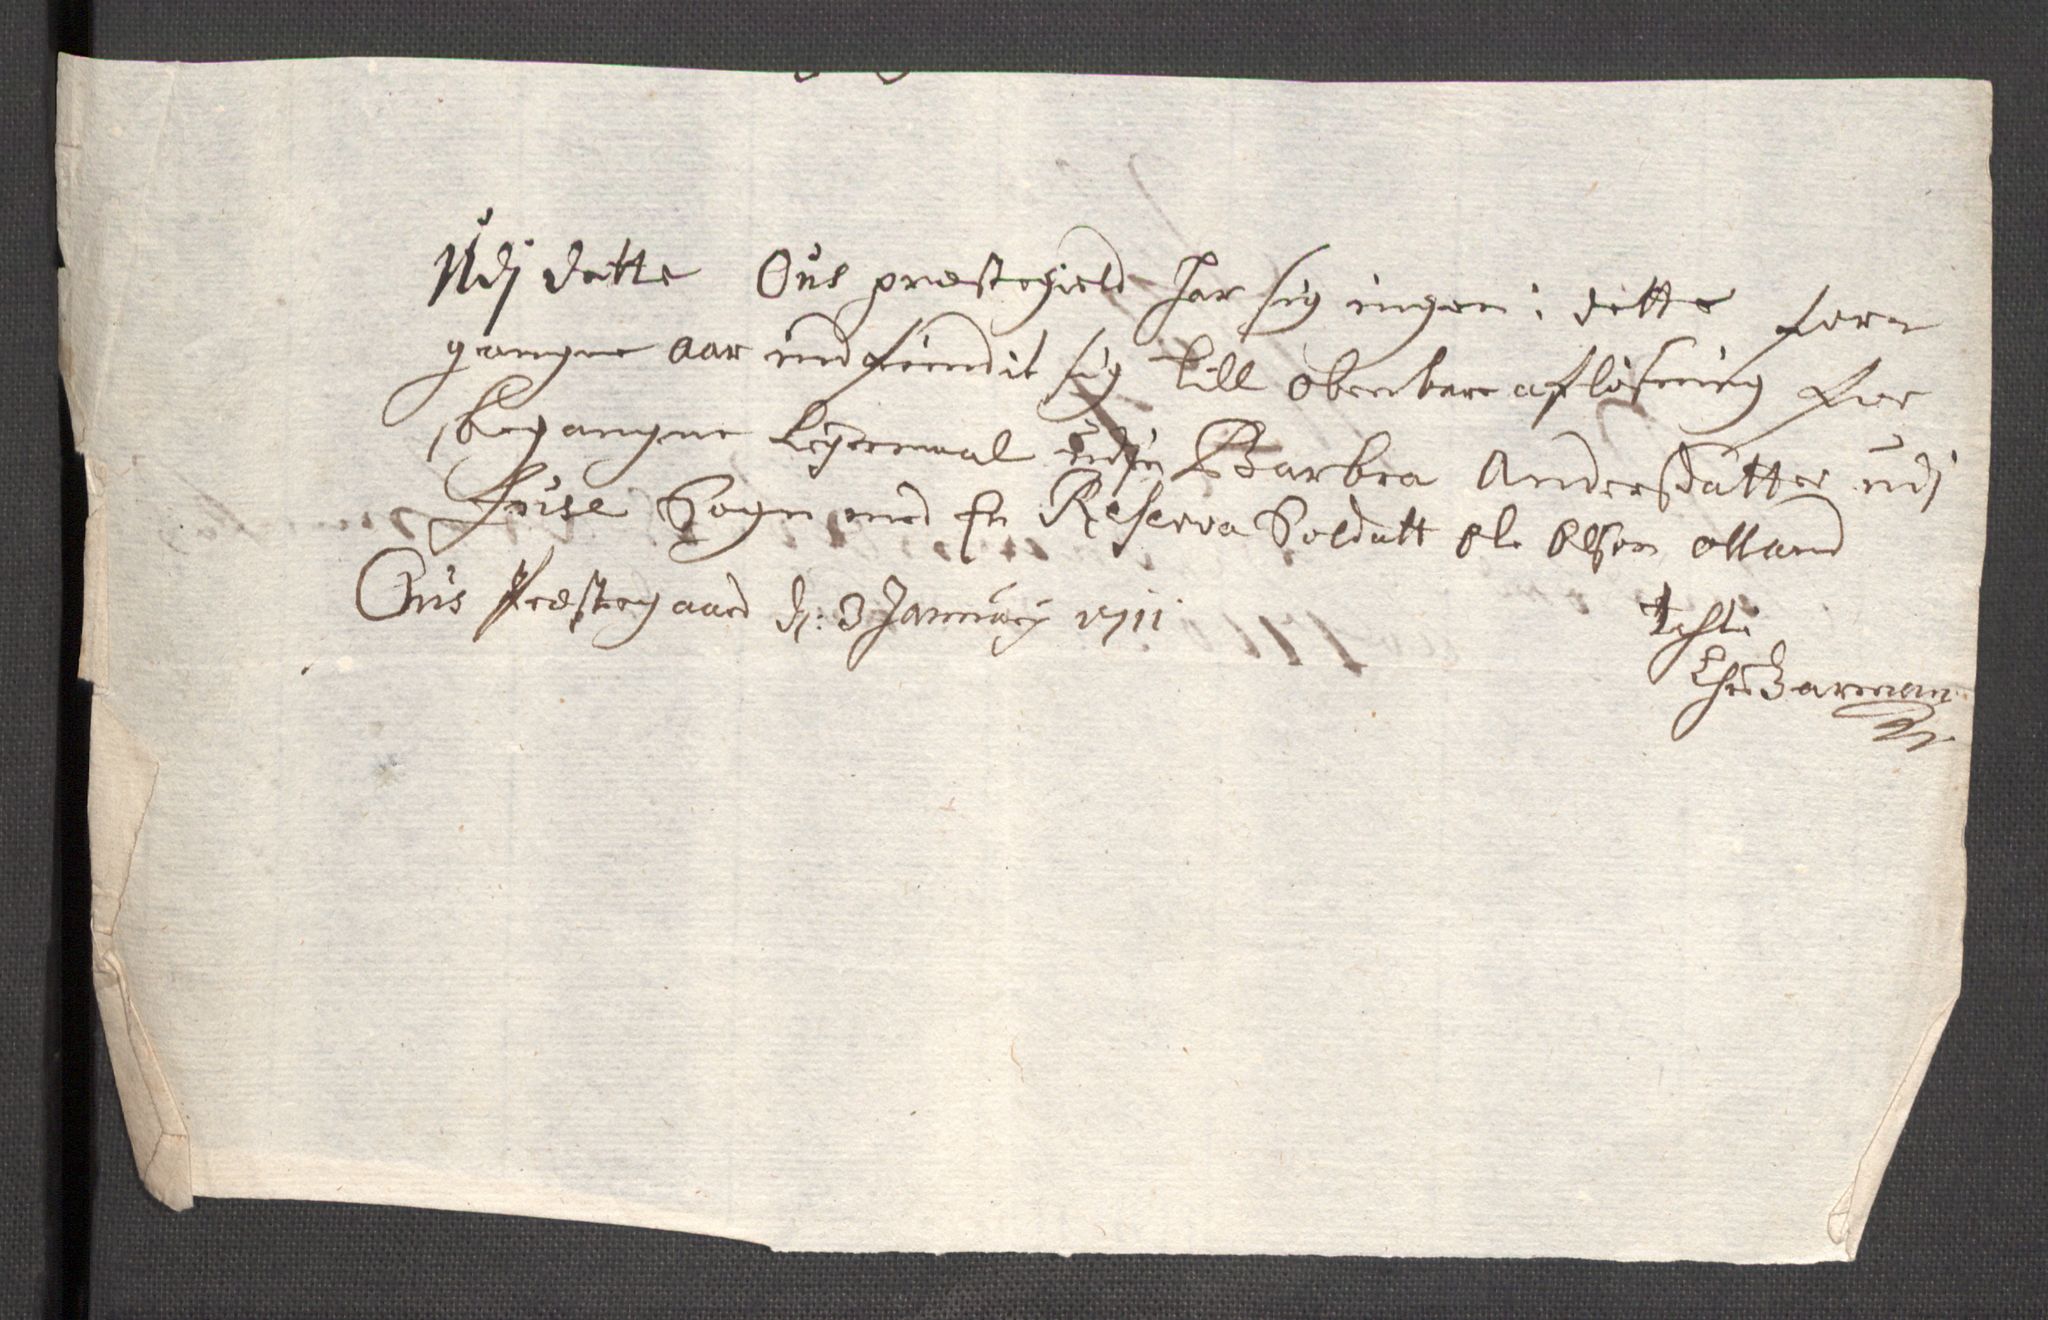 Udj dette Ous præstegield har sig ingen i dette for
gangne aar indfundit sig till obenbare afløsning for
begangne leyermaal uden Barbra Andersdatter udj
Fuse Sogn med En Reserva Soldatt Ole Olsen
Ous Præstegaard d: 3 January 1711
Testr